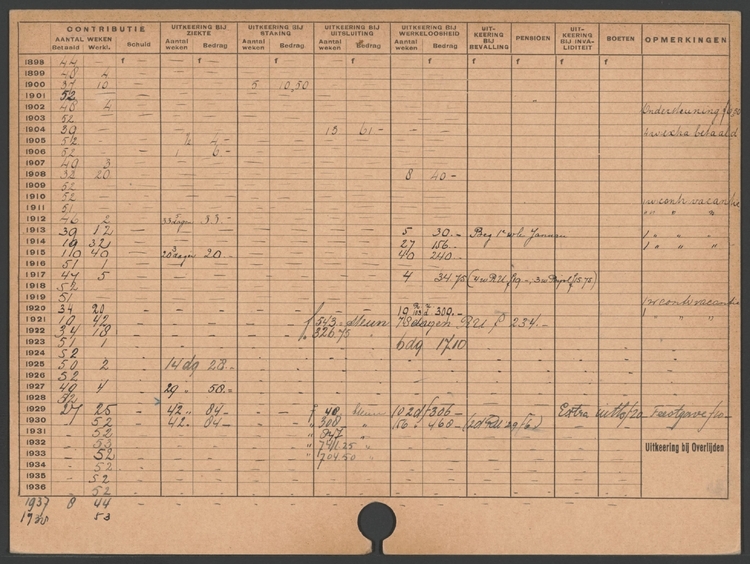 CONTRIBUTIE UITKEERING BIJ ZIEKTE UITKEERING BIJ STAKING UITKEERING BIJ UITSLUITING UITKEERING BIJ WERKELOOSHEID UIT-KEERING BIJ BEVALLING PENSIOEN UIT-KEERING BIJ INVA-LIDITEIT BOETEN OPMERKINGEN
AANTAL WEKEN Betaald Werkl. Schuld Aantal weken Bedrag Aantal weken Bedrag Aantal weken Bedrag Aantal weken Bedrag
1898 44 – f – f f f f f f f
1899 48 4
1900 37 10 – 5 10,50
1901 52
1902 48 4 Ondersteuning
1903 52
1904 39 13 61.– extra betaald
1905 52 4 –
1906 52 1 6 –
1907 49 3
1908 32 20 8 40 –
1909 52
1910 52
1911 51 1 w contr. vacantie
1912 46 2 33 dagen 33.– " " "
1913 39 12 5 30.– Beg 1e Januari
1914 19 32 27 156.– 1 " " "
1915 110 40 20 dagen 20.– 40 240.–
1916 51 1
1917 44 5 4 34.75
1918 52
1919 51 1 w contr vacantie
1920 34 20 19 300.–
1921 10 42 f 543.– steun 78 dagen R.U. f 234.–
1922 34 18 " 326.75
1923 51 1 6 dg 17.10
1924 52
1925 50 2 14 dg 28.–
1926 52
1927 49 4 29 " 58.–
1928 52
1929 27 25 42 " 84.– f 40.– steun 102 d f 306 – Extra uitk f 20 – Feestgave f 10 –
1930 – 52 42 " 84.– " 308 " 156 " 468 –
1931 – 52 " 847 "
1932 – 53 " 741.25 "
1933 – 52 " 704.50 " Uitkeering bij Overlijden
1934 – 52
1935 – 52
1936 – 52
1937 8 44
1938 53